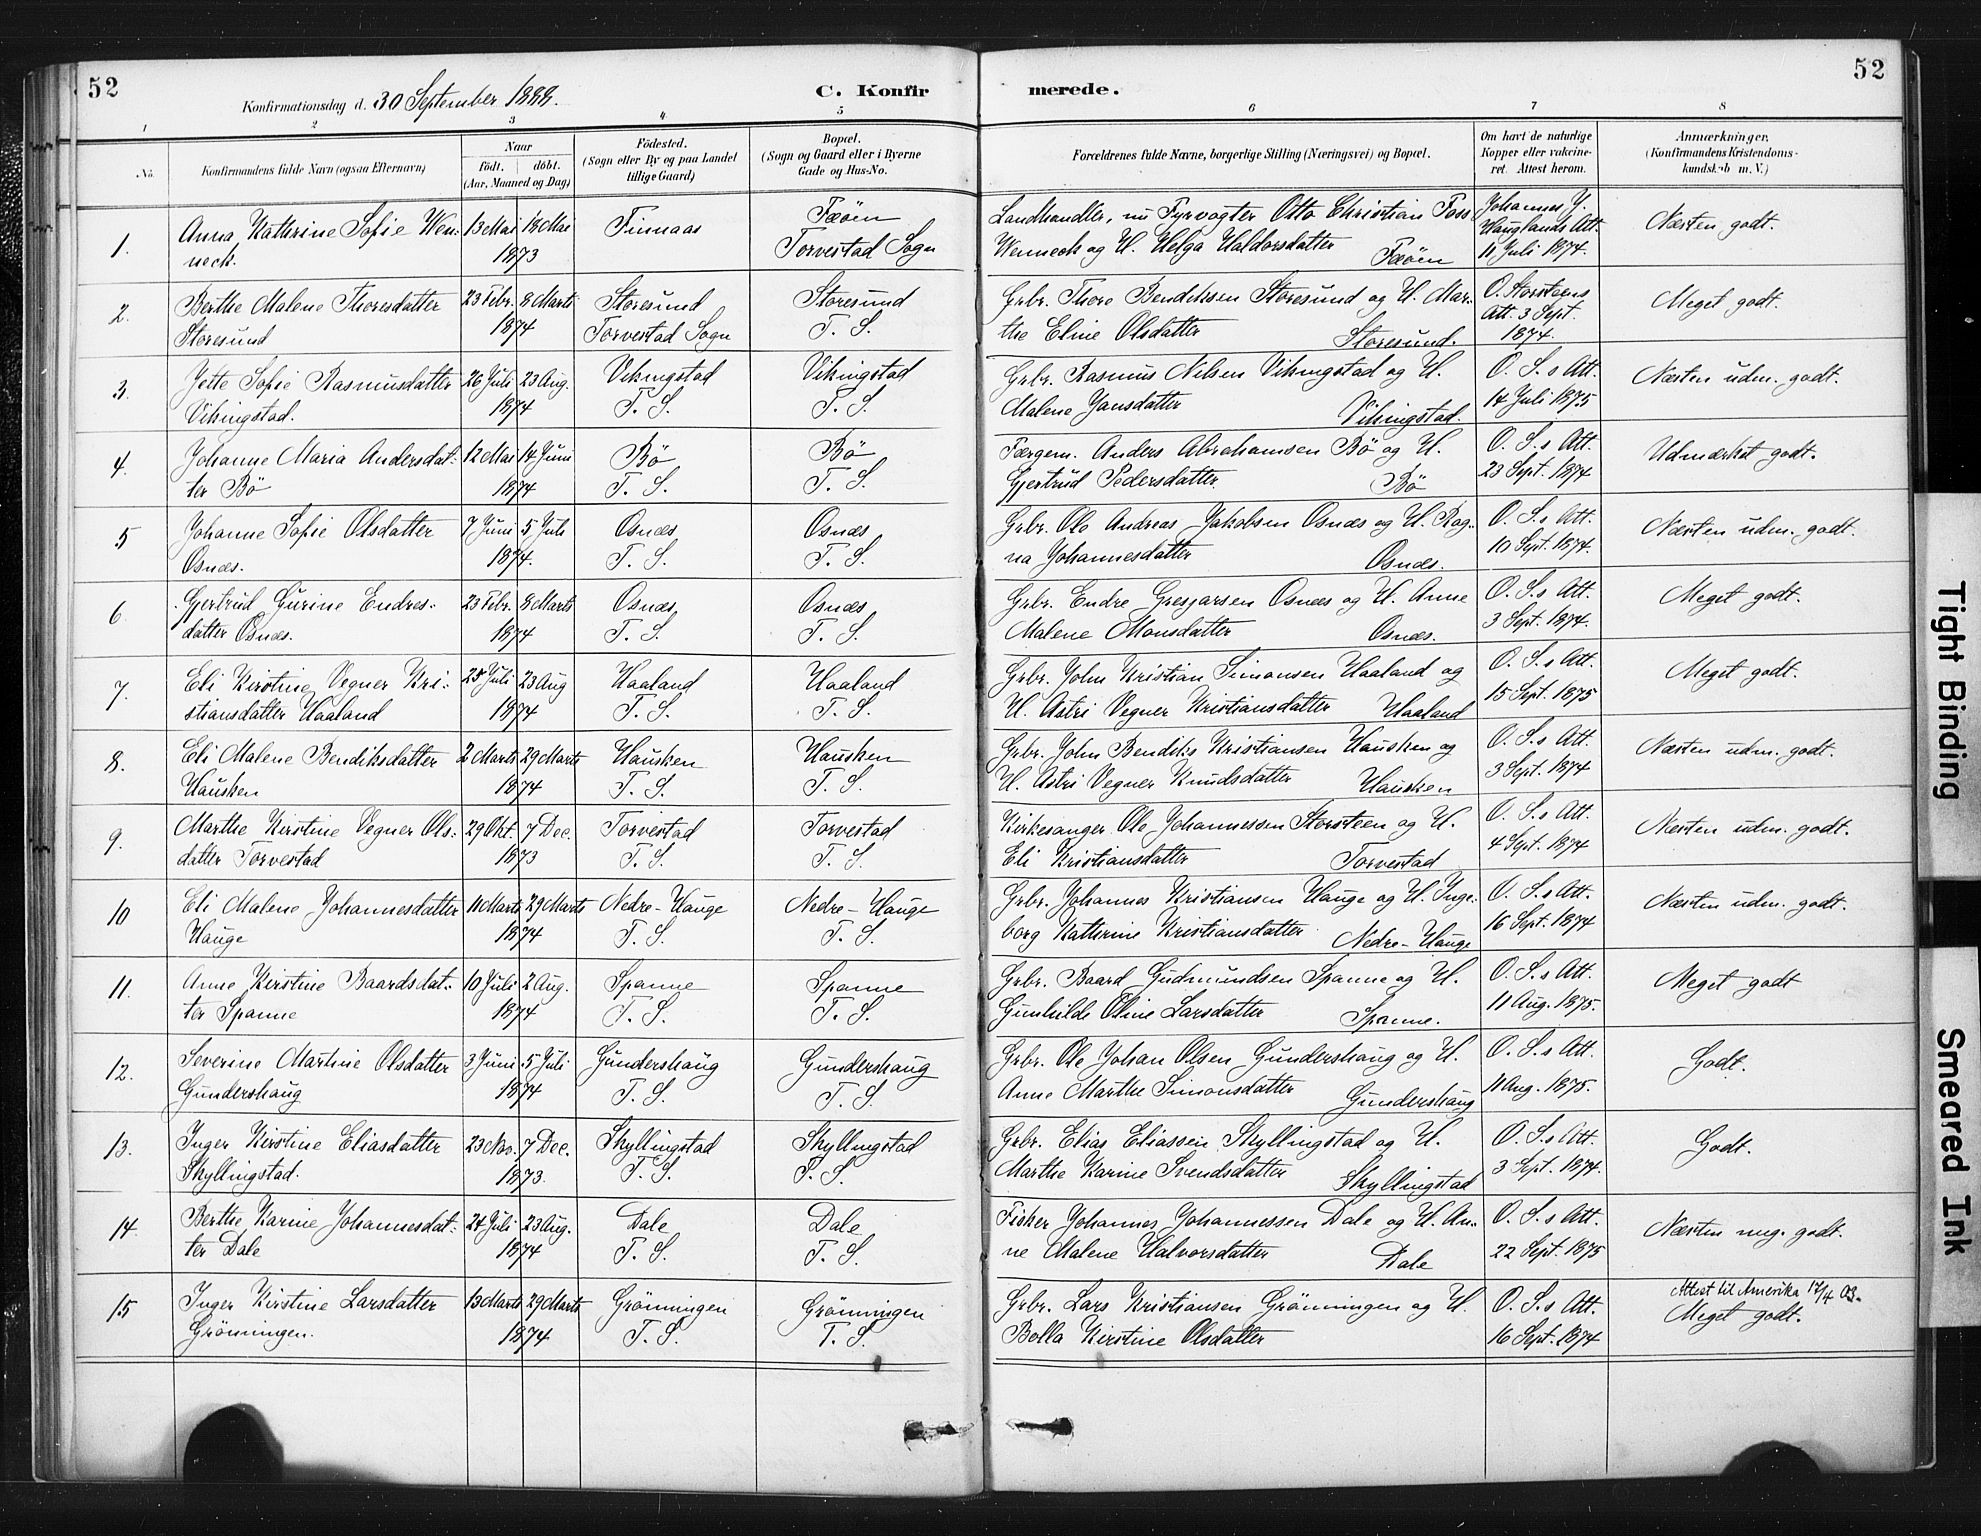 52
Konfirmationsdag d. 30 September 1888.
C. Konfir
merede.
52
1 2 3 4 5 6 7 8
No.
Konfirmandens fulde Navn (ogsaa Efternavn)
Naar
födt. döbt.
(Aar, Maaned og Dag)
Födested.
(Sogn eller By og paa Landet
tillige Gaard)
Bopæl.
(Sogn og Gaard eller i Byerne
Gade og Hus-No.
Forældrenes fulde Navne, borgerlige Stilling (Næringsvei) og Bopæl.
Om havt de naturlige
Kopper eller vakcine-
ret. Attest herom.
Anmærkninger.
(Konfirmandens Kristendoms-
kundskab m. V.)
1. Anna Kathrine Sofie Wen- 13 Mai 18 Mai Finnaas Fæöen Landhandler, nu Fyrvogter Otto Christian Foss Johannes J. Næsten godt.
neck. 1873 Torvestad Sogn Wenneck og H. Helga Haldorsdatter Fæöen Hauglands Att.
11 Juli 1874.
2. Berthe Malene Thoresdatter 23 Febr. 8 Marts Storesund Storesund Grbr. Thore Bendiksen Storesund og H. Mar- O. Storsteens Meget godt.
Storesund 1874 Torvestad Sogn T. S. the Eline Olsdatter Storesund. Att. 3 Sept.
1874.
3. Jette Sofie Rasmusdatter 26 Juli 23 Aug. Vikingstad Vikingstad Grbr. Rasmus Nilsen Vikingstad og H. O. S.s Att. Næsten udm. godt.
Vikingstad. 1874 T. S. T. S. Malene Jansdatter Vikingstad. 14 Juli 1875
4. Johanne Maria Andersdat- 12 Mai 14 Juni Bö Bö Færgem. Anders Abrahamsen Bö og H. O. S.s Att. Udmærket godt.
ter Bö 1874 T. S. T. S. Gjertrud Pedersdatter. Bö 23 Sept. 1874
5 Johanne Sofie Olsdatter 7 Juni 5 Juli Osnæs Osnæs Grbr. Ole Andreas Jakobsen Osnæs og H. Rag- O. S.s Att. Næsten udm. godt.
Osnæs. 1874. T. S. T. S. na Johannesdatter Osnæs. 10 Sept. 1874.
6 Gjertrud Gurine Endres- 23 Febr. 8 Marts Osnæs Osnæs Grbr. Endre Gresjarsen Osnæs og H. Anne O. S.s Att. Meget godt.
datter Osnæs. 1874 T. S. T. S. Malene Monsdatter Osnæs. 3 Sept. 1874.
7. Eli Kirstine Vegner Kri- 25 Juli 23 Aug Haaland Haaland Grbr. John Kristian Simonsen Haaland og O. S.s Att. Meget godt.
stiansdatter Haaland 1874 T. S. T. S. H. Astri Vegner Kristiansdatter Haaland 15 Sept. 1875
8. Eli Malene Bendiksdatter 2 Marts 29 Marts Hausken Hausken Grbr. John Bendiks Kristiansen Hausken og O. S.s Att. Næsten udm. godt.
Hausken 1874 T. S. T. S. H. Astri Vegner Knudsdatter Hausken 3 Sept. 1874
9. Marthe Kirstine Vegner Ols- 29 Okt. 7 Dec. Torvestad Torvestad Kirkesanger Ole Johannessen Storsteen og H. O. S.s Att. Næsten udm. godt.
datter Torvestad 1873 T. S. T. S. Eli Kristiansdatter Torvestad 4 Sept. 1874
10 Eli Malene Johannesdatter 11 Marts 29 Marts Nedre-Hauge Nedre-Hauge Grbr. Johannes Kristiansen Hauge og H. Inge- O. S.s Att. Næsten udm. godt.
Hauge 1874 T. S. T. S. borg Kathrine Kristiansdatter Nedre-Hauge 16 Sept. 1874
11. Anne Kirstine Baardsdat- 10 Juli 2 Aug. Spanne Spanne Grbr. Baard Gudmundsen Spanne og H. O. S.s Att. Meget godt
ter Spanne 1874 T. S. T. S. Gunhilde Oline Larsdatter Spanne. 11 Aug. 1875.
12. Severine Martine Olsdatter 3 Juni 5 Juli Gundershaug Gundershaug Grbr. Ole Johan Olsen Gundershaug og H. O. S.s Att. Godt.
Gundershaug 1874 T. S. T. S. Anne Marthe Simonsdatter Gundershaug 11 Aug. 1875.
13. Inger Kirstine Eliasdatter 23 Nov. 7 Dec. Skyllingstad Skyllingstad Grbr. Elias Eliassen Skyllingstad og H. O. S.s Att. Godt.
Skyllingstad. 1873. T. S. T. S. Marthe Karine Svendsdatter Skyllingstad 3 Sept. 1874.
14. Berthe Karine Johannesdat- 24 Juli 23 Aug. Dale Dale Fisker Johannes Johannessen Dale og H. An- O. S.s Att. Næsten meg. godt.
ter Dale 1874 T. S. T. S. ne Malene Halvorsdatter Dale 22 Sept. 1875
15 Inger Kirstine Larsdatter 13 Marts 29 Marts Grönningen Grönningen Grbr. Lars Kristiansen Grönningen og H. O. S.s Att. Attest til Amerika 17/4 03.
Grönningen. 1874 T. S. T. S. Bolla Kirstine Olsdatter 16 Sept. 1874 Meget godt.
Tight Binding
Smeared Ink